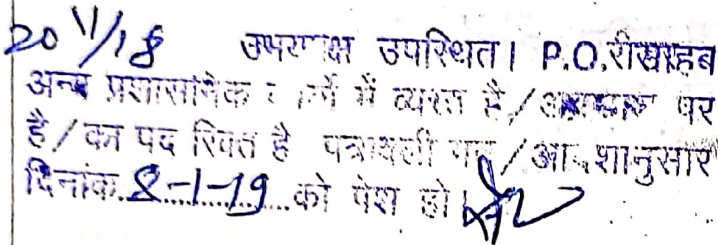 20/11/18 उभयपक्ष उपस्थित। P.O.री साहब
अन्य प्रशासनिक कार्यों में व्यस्त है/अवकाश पर
है/का पद रिक्त है पत्रावली /आदेशानुसार
दिनांक..8-1-19..को पेश हो